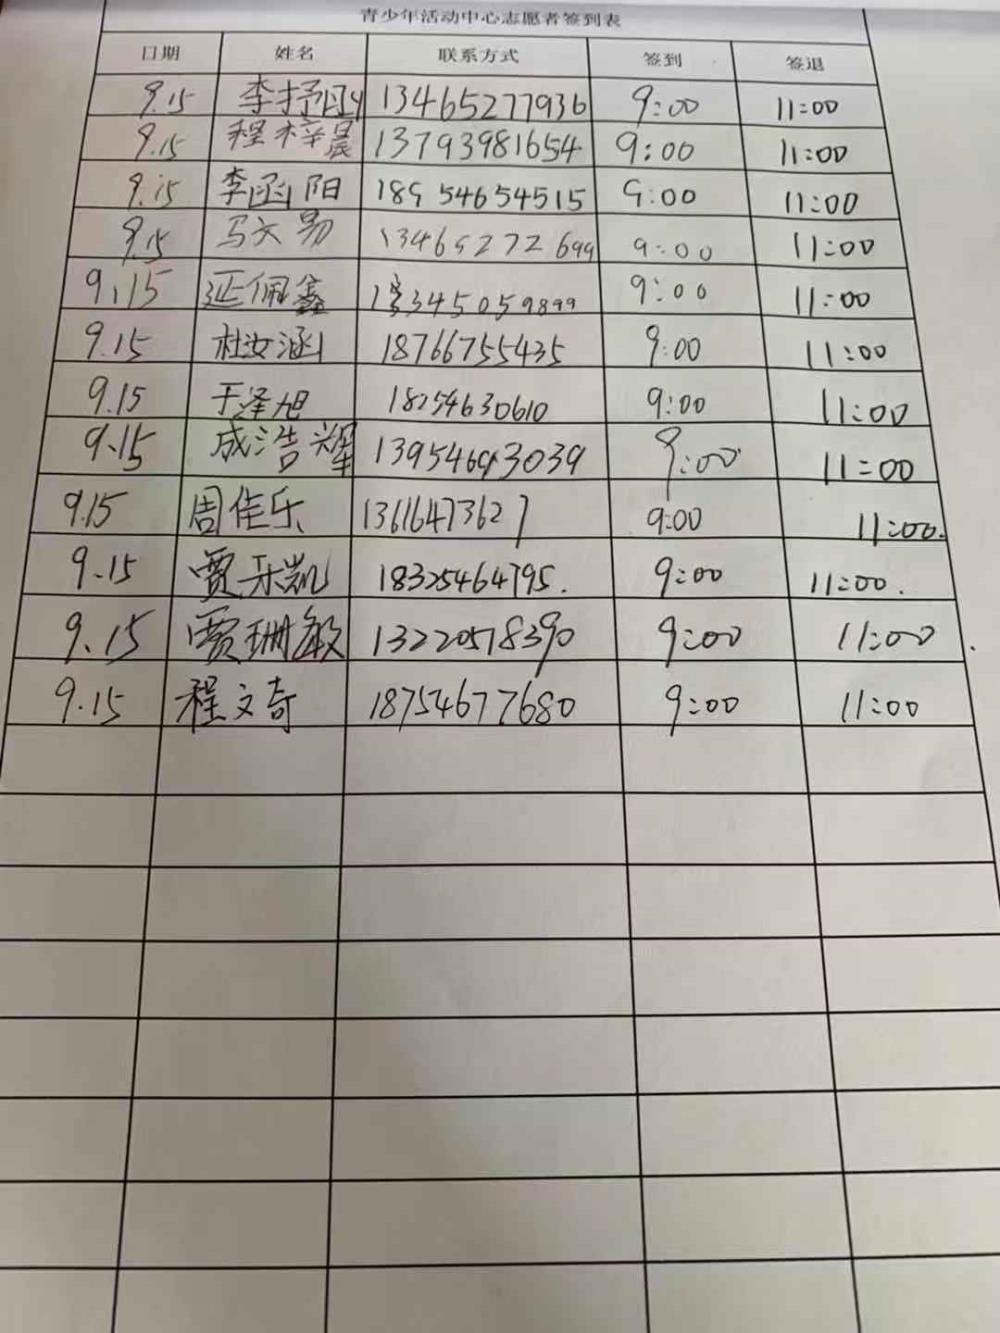 青少年活动中心志愿者签到表
日期 姓名 联系方式 签到 签退
9.15 李抒函 13465277936 9:00 11:00
9.15 程梓晨 13793981654 9:00 11:00
9.15 李函阳 18954654515 9:00 11:00
9.15 13465272699 9:00 11:00
9.15 延佩鑫 9:00 11:00
9.15 杜汝涵 18766755435 9:00 11:00
9.15 于泽旭 18254630610 9:00 11:00
9.15 成浩辉 13954693039 9:00 11:00
9.15 周佳乐 13616473627 9:00 11:00.
9.15 贾乐凯 18325464795. 9:00 11:00.
9.15 贾珊敏 13220578390 9:00 11:00
9.15 程文奇 18754677680 9:00 11:00